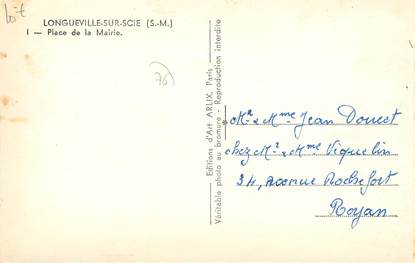 LONGUEVILLE-SUR-SCIE (S.-M.)
1 — Place de la Mairie.
Editions d'Art ARLIX, Paris
Véritable photo au bromure - Reproduction interdite
Mr & Mme Jean Douest
chez Mr & Mme Viquelin
34, avenue Rochefort
Royan